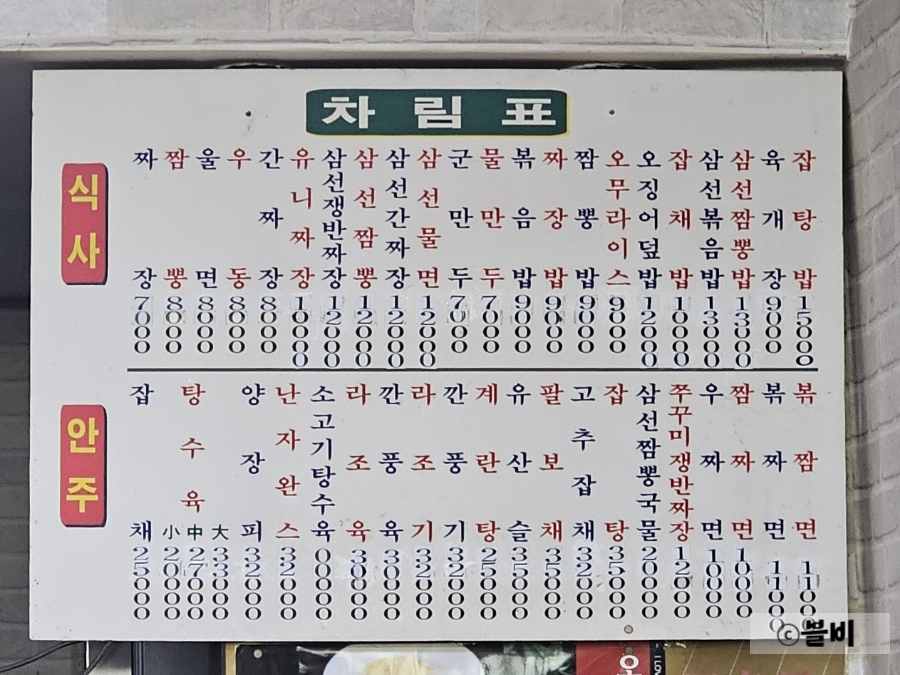 차림표
식사
짜장 7000
짬뽕 8000
울면 8000
우동 8000
간짜장 8000
유니짜장 10000
삼선쟁반짜장 12000
삼선짬뽕 12000
삼선간짜장 12000
삼선물면 12000
군만두 7000
물만두 7000
볶음밥 9000
짜장밥 9000
짬뽕밥 9000
오무라이스 9000
오징어덮밥 12000
잡채밥 10000
삼선볶음밥 13000
삼선짬뽕밥 13000
육개장 9000
잡탕밥 15000
안주
잡채 25000
탕수육 小 20000 中 27000 大 33000
양장피 32000
난자완스 32000
소고기탕수육 00000
라조육 30000
깐풍육 30000
라조기 32000
깐풍기 32000
계란탕 25000
유산슬 35000
팔보채 35000
고추잡채 32000
잡탕 35000
삼선짬뽕국물 20000
쭈꾸미쟁반짜장 12000
우짜면 10000
짬짜면 10000
볶짜면 11000
볶짬면 11000
©블비